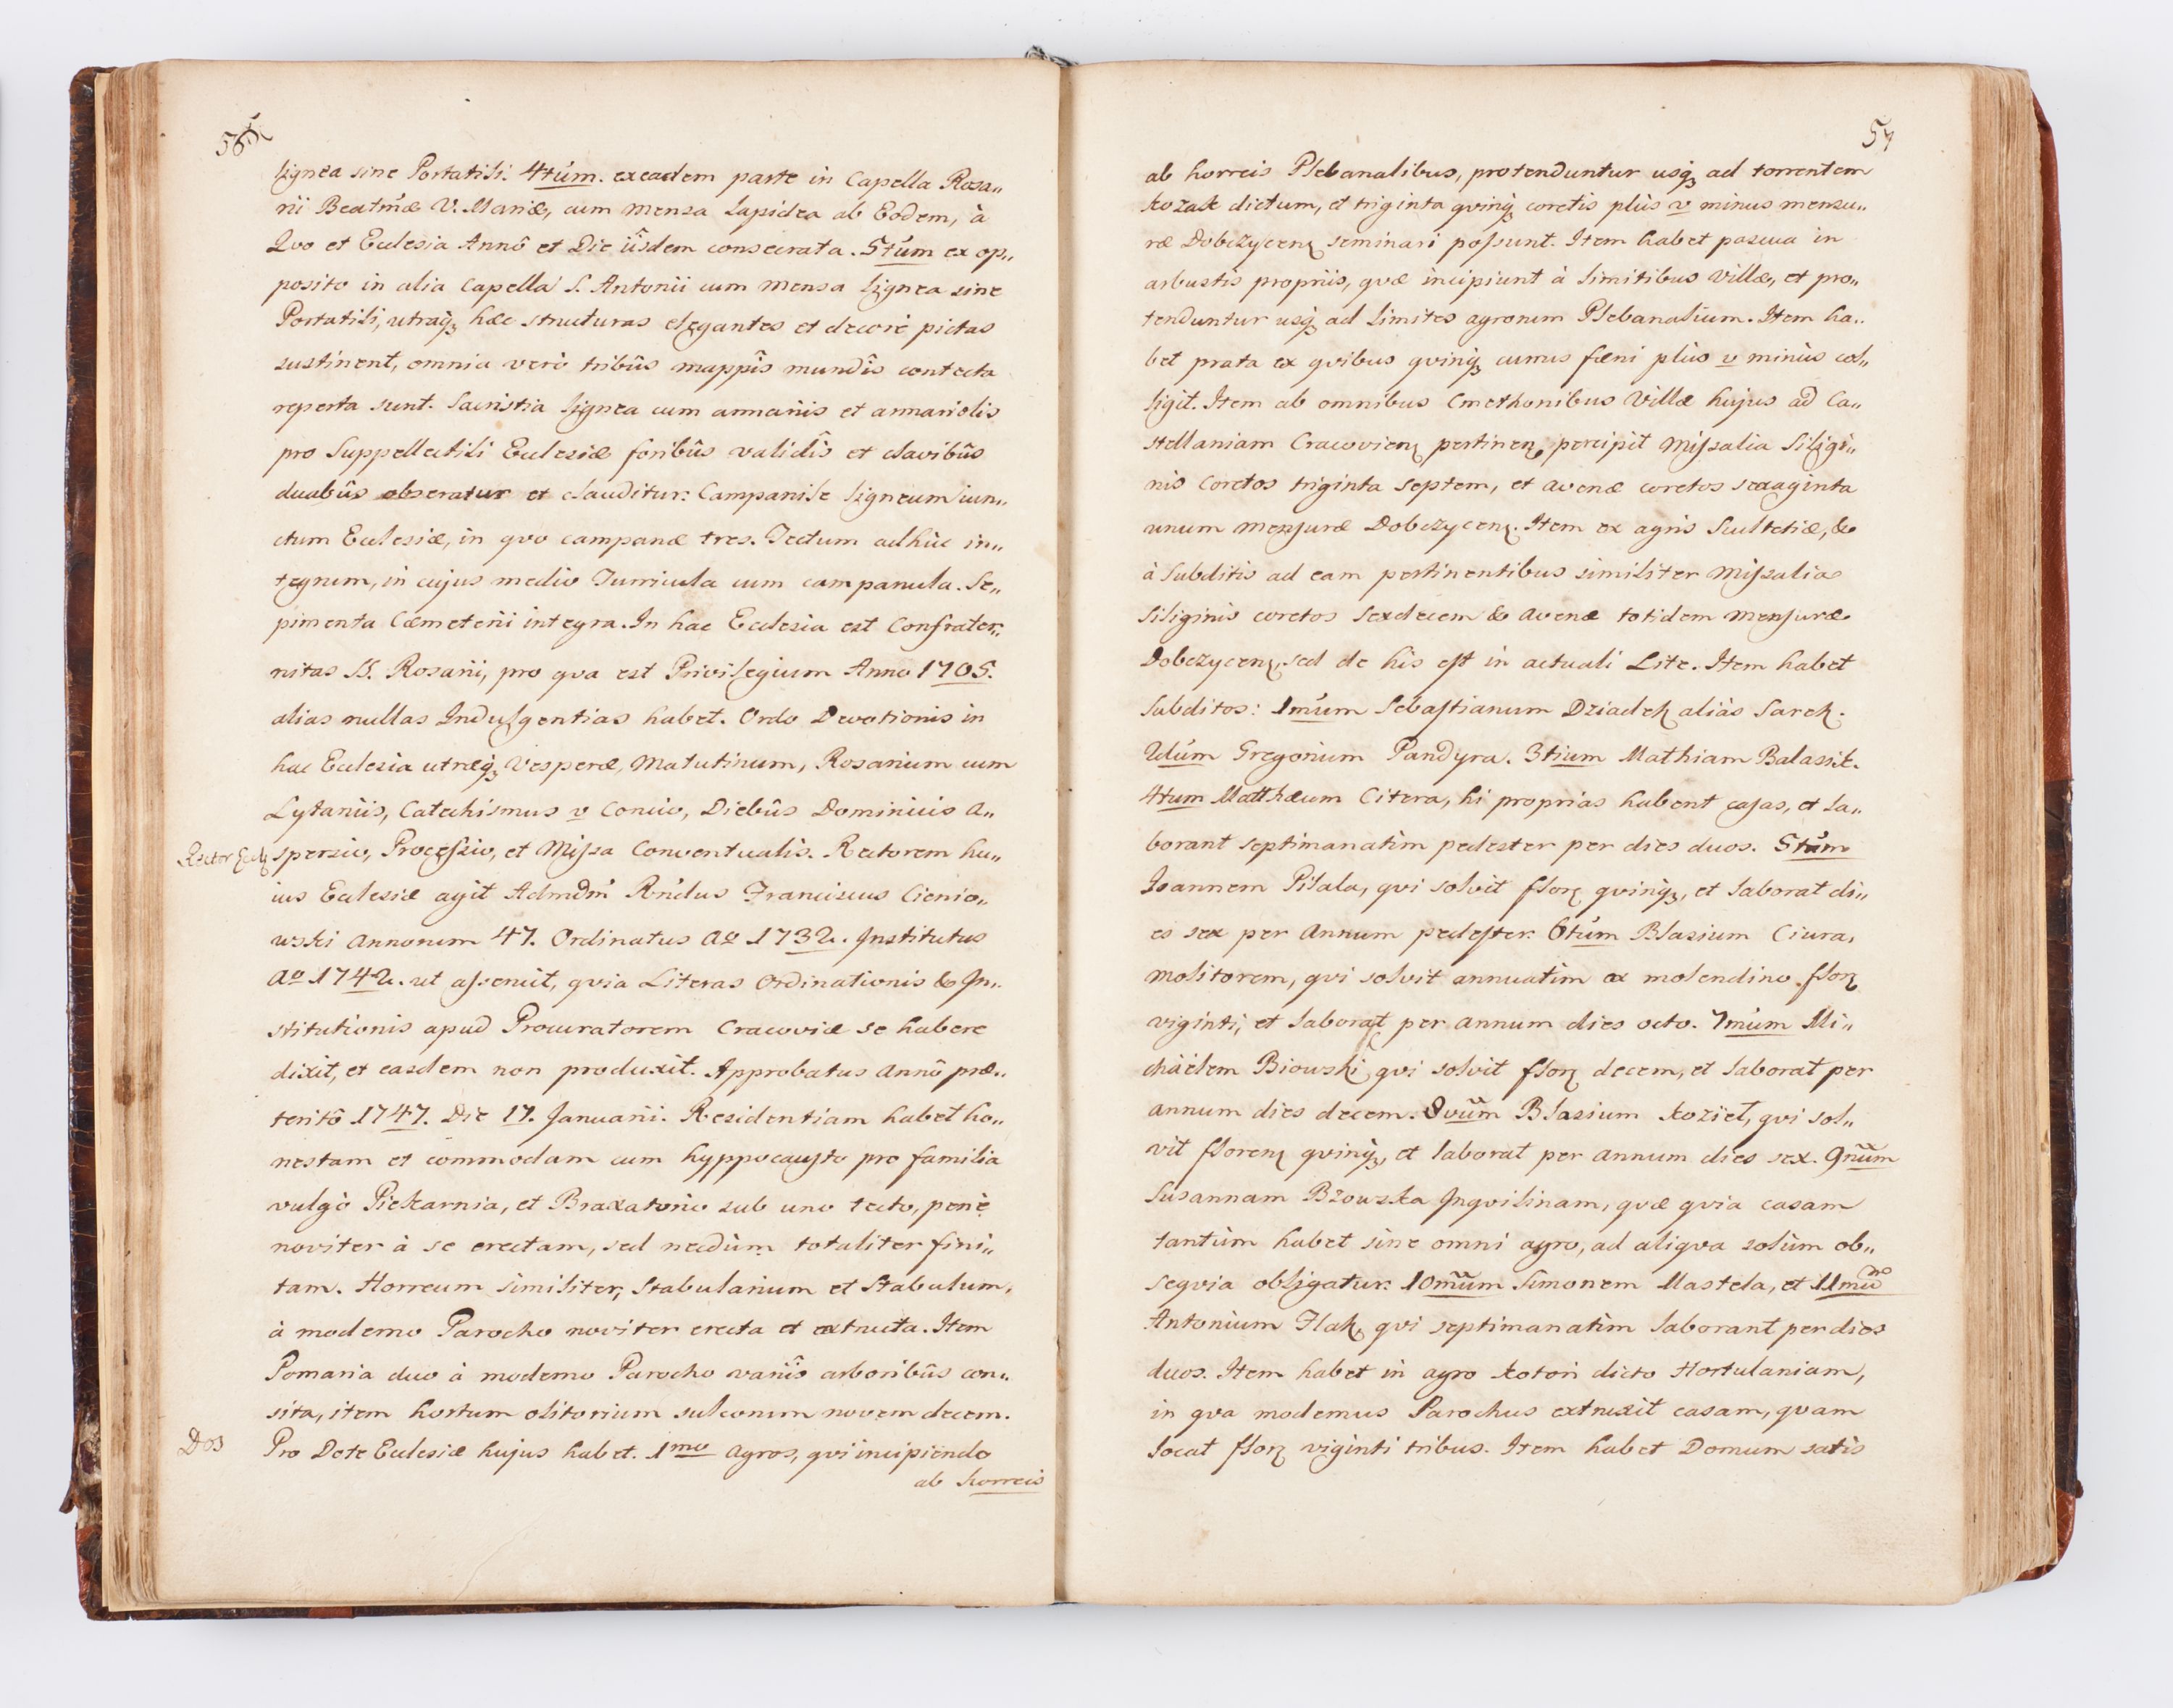 56
lignea sine Portatili. 4túm. ex eadem parte in Capella Rosa„
rii Beatmæ V. Mariæ, cum mensa lapidea ab Eodem, à
Quo et Ecclesia Annô et Die iîsdem consecrata. 5túm ex op„
posito in alia Capella S. Antonii cum mensa lignea sine
Portatili, utraq₃ hæc structuras elegantes et decorè pictas
sustinent, omnia verò tribûs mappîs mundîs contecta
reperta sunt. Sacristia lignea cum armariis et armariolis
pro Suppellectili Ecclesiæ foribûs validîs et clavibûs
duabûs obseratur et clauditur. Campanile ligneum iun„
ctum Ecclesiæ, in qvo campanæ tres. Tectum adhùc in„
tegrum, in cujus medio Turricula cum campanula. Se„
pimenta Cæmeterii integra. In hac Ecclesia est Confrater„
nitas SS. Rosarii, pro qva est Privilegium Anno 1705.
alias nullas Indulgentias habet. Ordo Devotionis in
hac Ecclesia utræq₃ Vesperæ, Matutinum, Rosarium cum
Lytaniis, Catechismus v Concio, Diebûs Dominicis A„
Rector Eccl
spersio, Processio, et Missa Conventualis. Rectorem hu„
ius Ecclesiæ agit Admdm Rndus Franciscus Cienio„
wski annorum 47. Ordinatus Ao 1732. Institutus
Ao 1742. ut asseruit, qvia Literas Ordinationis & In„
stitutionis apud Procuratorem Cracoviæ se habere
dixit, et easdem non produxit. Approbatus Annô præ„
teritô 1747. Die 17. Januarii. Residentiam habet ho„
nestam et commodam cum hyppocausto pro familia
vulgò Piekarnia, et Braxatorio sub uno tecto, penè
noviter à se erectam, sed necdùm totaliter fini„
tam. Horreum similiter, Stabularium et Stabulum,
à moderno Parocho noviter erecta et extructa. Item
Pomaria duo à moderno Parocho variîs arboribûs con„
sita, item hortum olitorium sulcorum novem decem.
Dos
Pro Dote Ecclesiæ hujus habet. 1mo Agros, qvi incipiendo
ab horreis
57
ab horreis Plebanalibus, protenduntur usq₃ ad torrentem
kozak dictum, et triginta qvinq₃ coretis plùs v minus mensu„
ræ Dobczycen seminari possunt. Item habet pascua in
arbustis propriis, qvæ incipiunt à limitibus Villæ, et pro„
tenduntur usq₃ ad limites agrorum Plebanalium. Item ha„
bet prata ex qvibus qvinq₃ currus fæni plùs v minùs col„
ligit. Item ab omnibus Cmethonibus Villæ hujus ad Ca„
stellaniam Cracovien pertinen, percipit Missalia Siligi„
nis Coretos triginta septem, et avenæ coretos sexaginta
unum mensuræ Dobczycen. Item ex agris Scultetiæ, &
à Subditis ad eam pertinentibus similiter Missalia
Siliginis coretos sexdecem & avenæ totidem mensuræ
Dobczycen, sed de his est in actuali Lite. Item habet
Subditos: 1múm Sebastianum Dziadek aliàs Sarek.
2dúm Gregorium Pandyra. 3tium Mathiam Balasik.
4tum Matthæum Citera, hi proprias habent casas, et la„
borant septimanatim pedester per dies duos. 5túm
Joannem Pitala, qvi solvit flor qvinq₃, et laborat di„
es sex per Annum pedester. 6túm Blasium Ciura,
molitorem, qvi solvit annuatim ex molendino flor
viginti, et laborat per annum dies octo. 7múm Mi„
chäelem Biowski qvi solvit flor decem, et laborat per
annum dies decem. 8vum Blasium koziet, qvi sol„
vit floren qvinq₃, et laborat per annum dies sex. 9num
Susannam Bzowska Inqvilinam, qvæ qvia casam
tantùm habet sine omni agro, ad aliqva solùm ob„
seqvia obligatur. 10mum Simonem Mastela, et 11mum
Antonium Flak, qvi septimanatim laborant per dies
duos. Item habet in agro kotori dicto Hortulaniam,
in qva modernus Parochus extruxit casam, qvam
locat flor viginti tribus. Item habet Domum satis